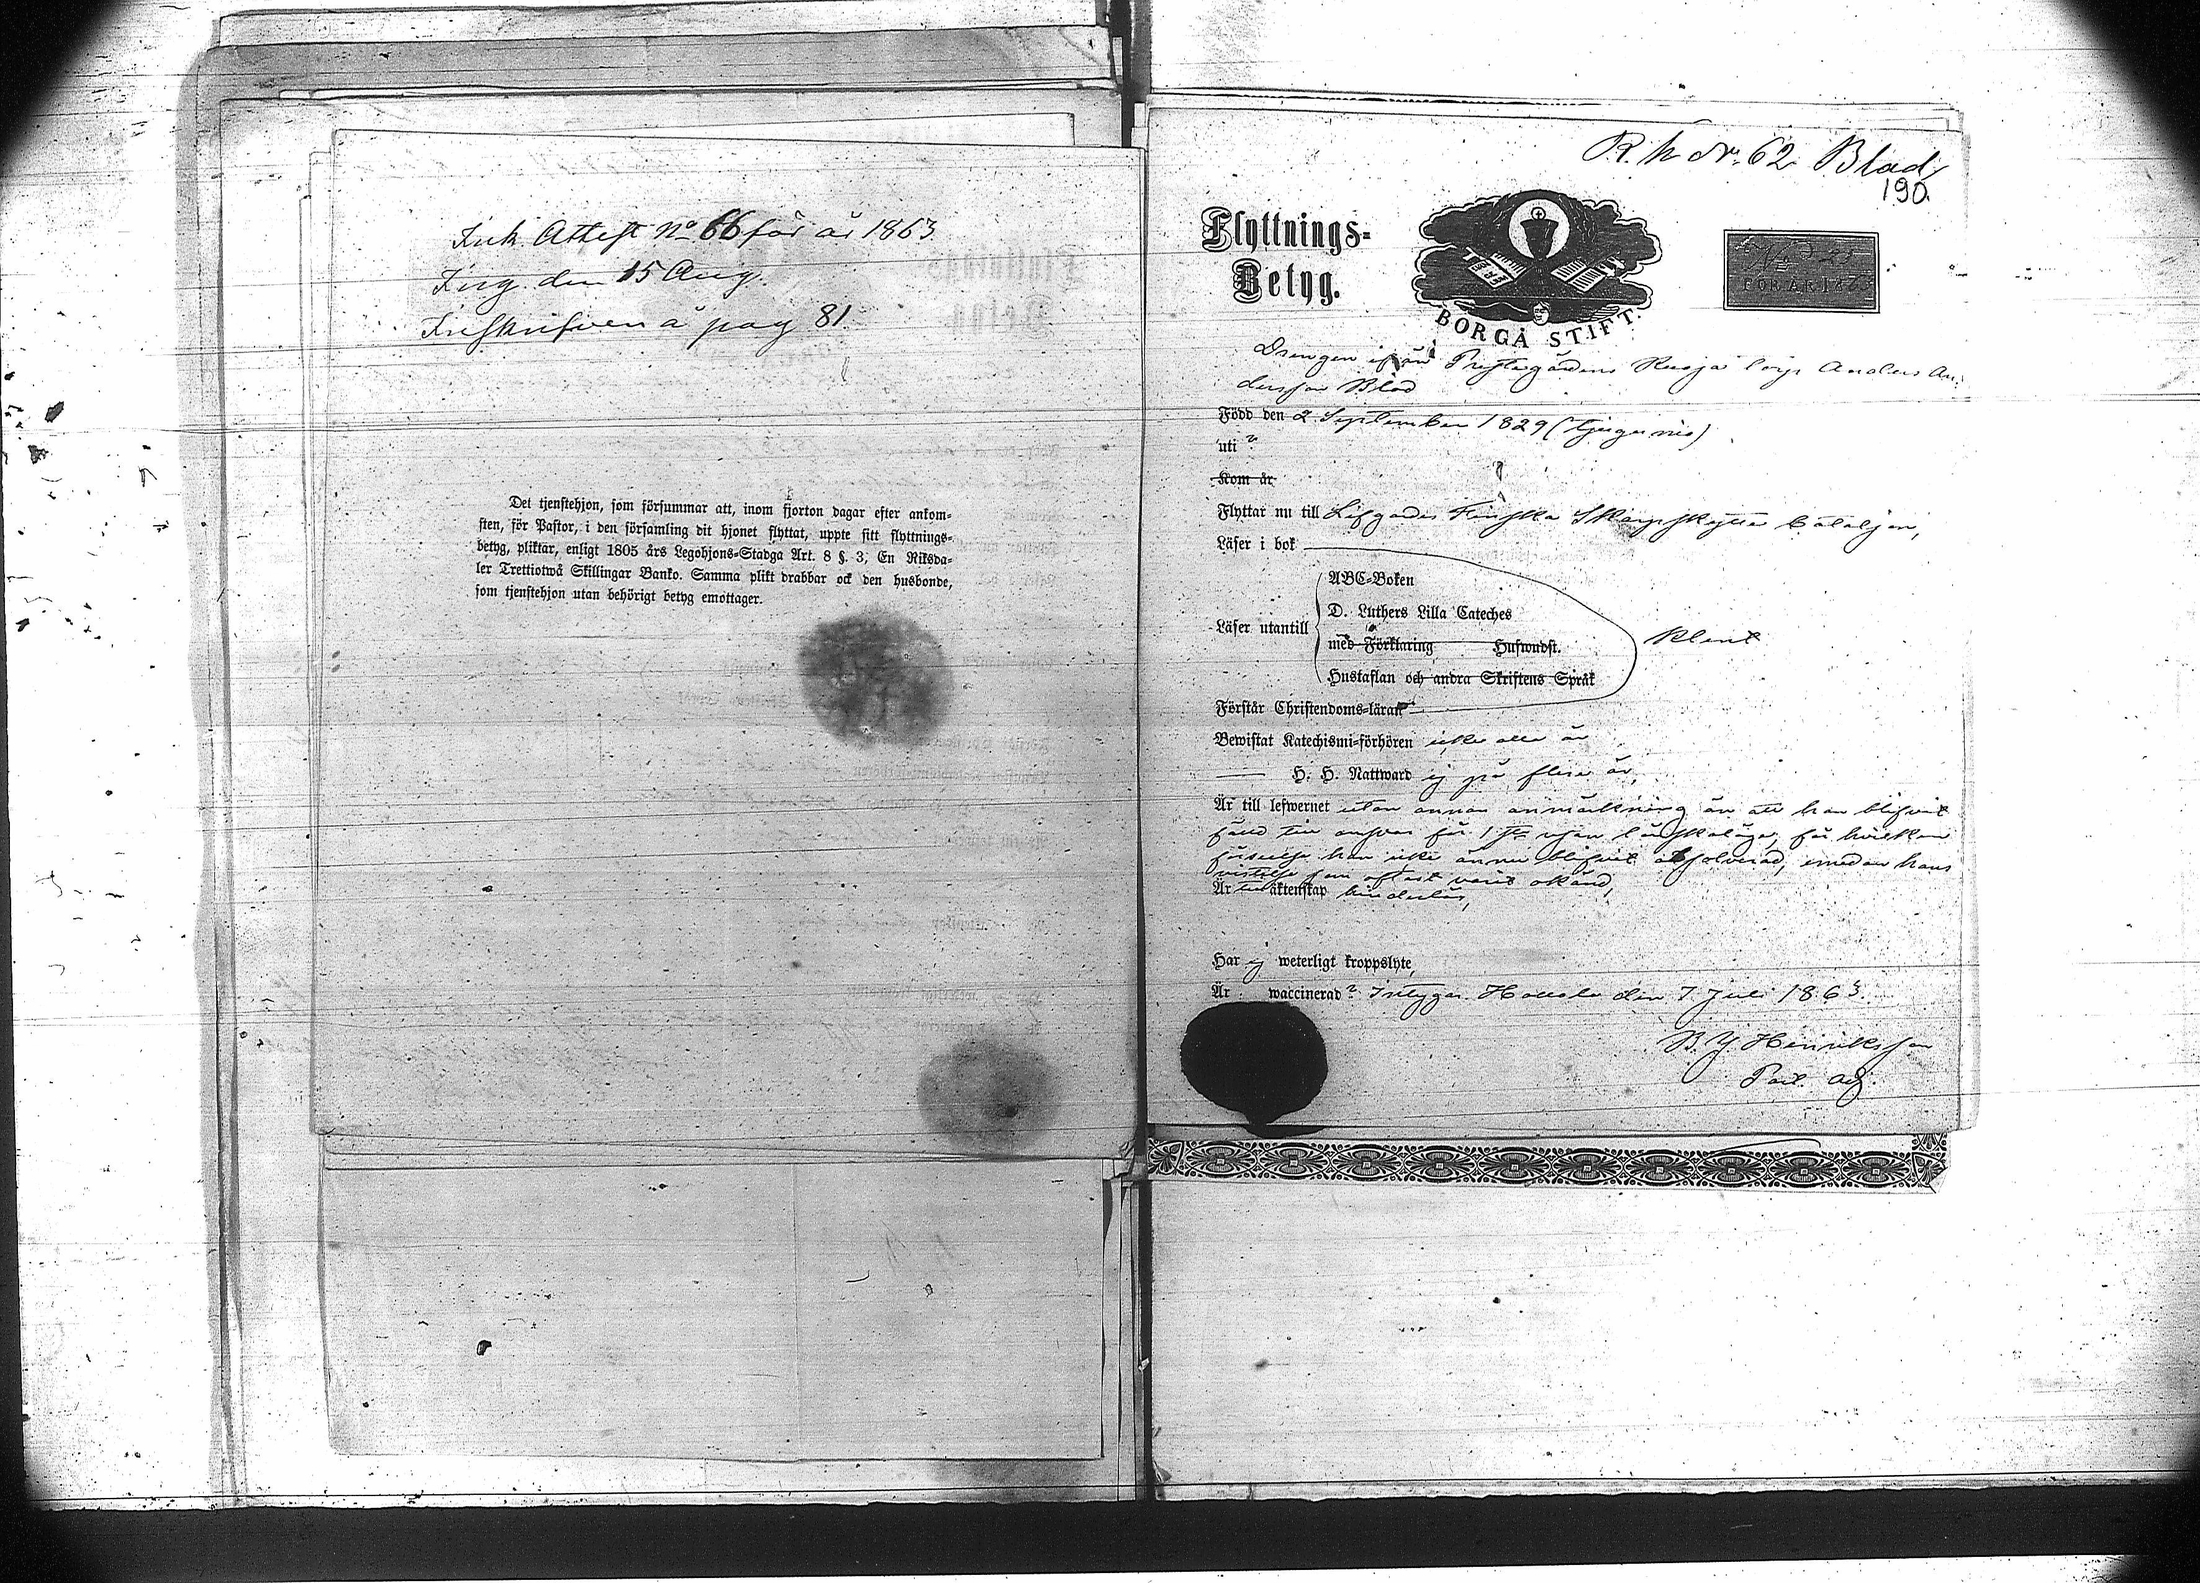 Ink. Attest No 66 för år 1863
Ing. den 15 Aug.
Inskrifven å pag 81.
Det tjenstehjon, som försummar att, inom fjorton dagar efter ankom-
sten, för Pastor, i den församling dit hjonet flyttat, uppte sitt flyttnings-
betyg, pliktar, enligt 1805 års Legohjons-Stadga Art. 8 §. 3, En Riksda-
ler Trettiotwå Skillingar Banko. Samma plikt drabbar ock den husbonde,
som tjenstehjon utan behörigt betyg emottager.
R. k. Nr. 62 Blad,
190.
Flyttnings=
Betyg.
BORGÅ STIFT.
FÖR ÅR 1863
Drengen ifrån Prestegårdens Anders An-
dersson Blad
Född den 2 September 1829
uti ?
Kom år
Flyttar nu till Lifgardes Finska Skarpskytte bataljon,
Läser i bok
Läser utantill
ABC=Boken
D. Luthers Lilla Cateches
med Förklaring Huswudst.
Hustaflan och andra Skriftens Språk
klent
Förstår Christendoms=läran
Bewistat Katechismi=förhören icke alla år
H. H. Nattward ej på flera år,
Är till lefwernet utan annan anmärkning än att han blifvit
fälld till ansvar för 1sta resan lönskaläge, för hvilken
förseelse han icke ännu blifvit absolverad, emedan hans
vistelse som oftast varit okänd,
Är till äktenskap hinderlös,
Har ej weterligt kroppslyte,
Är waccinerad? Intygar. Hollola den 7 Juli 1863.
B. J. Henriksson
Past. adj.